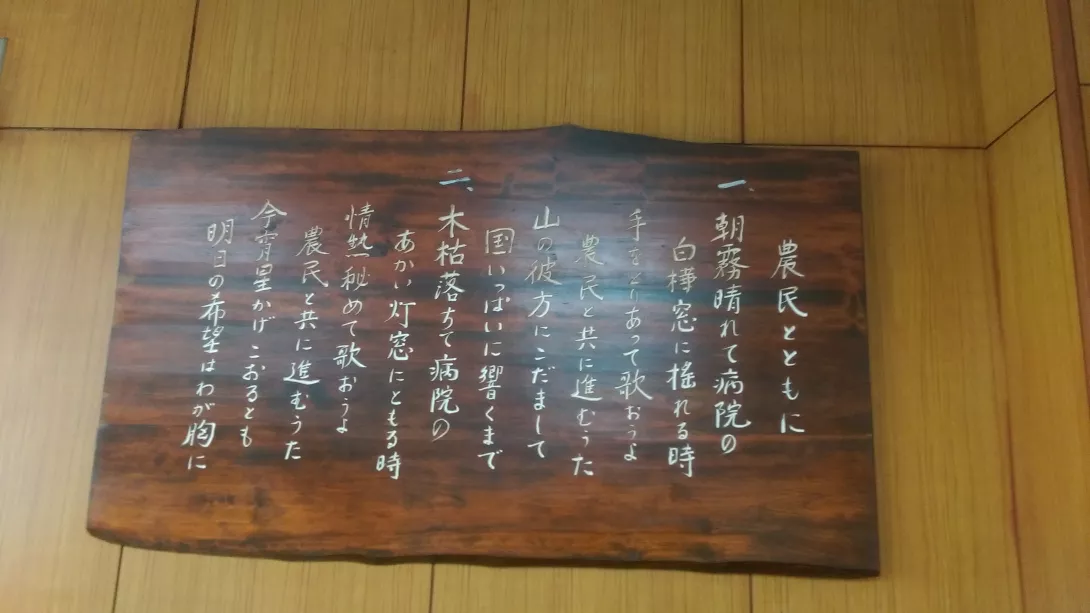 農民とともに
一、朝霧晴れて病院の
白樺窓に揺れる時
手をとりあって歌おうよ
農民と共に進むうた
山の彼方にこだまして
国いっぱいに響くまで
二、木枯落ちて病院の
あかい灯窓にともる時
情熱秘めて歌おうよ
農民と共に進むうた
今宵星かげこおるとも
明日の希望はわが胸に